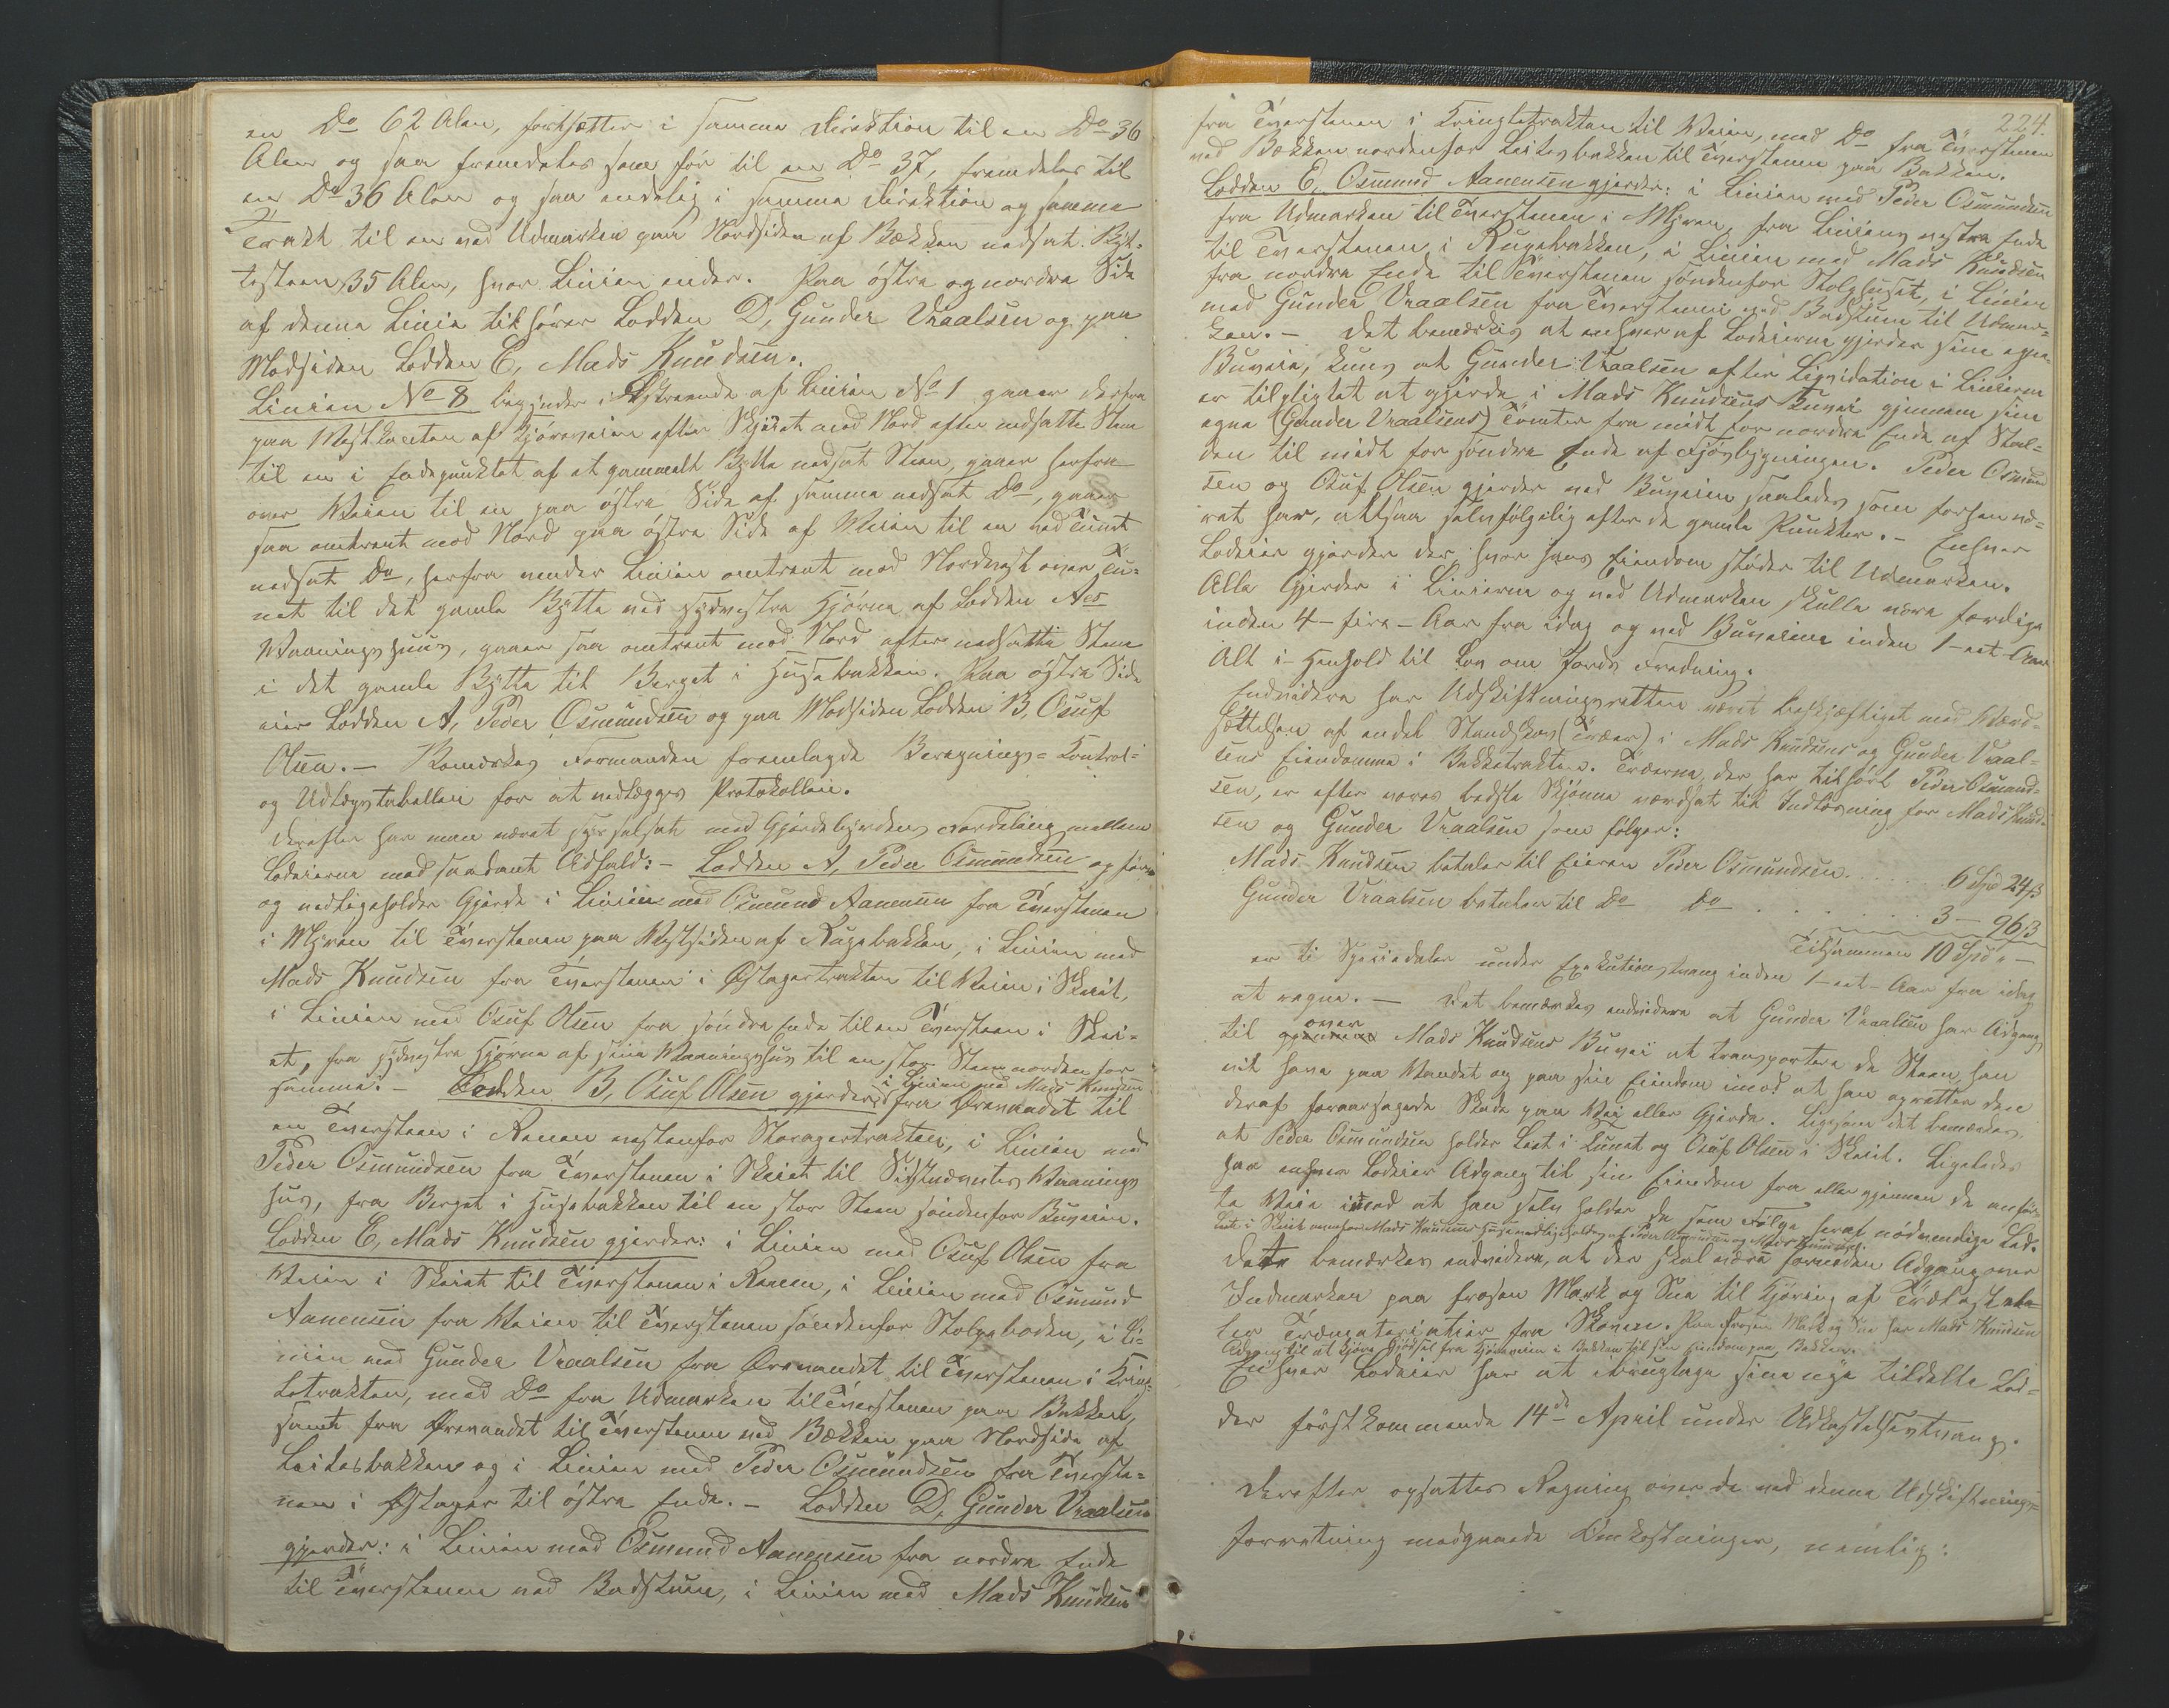 en Do 62 Alen, fortsætter i samme Direktion til en Do 36
Alen og saa fremdeles som før til en Do 37, fremdeles til
en Do 36 Alen og saa endelig i samme Direktion og samme
Trakt til en ved Udmarken paa Nordsiden af Bækken nedsat Byt-
testeen 35 Alen, hvor Linien ender. Paa østre og nordre Side
af denne Linie tilhører Lodden D, Gunder Vraalsen og paa
Modsiden Lodden E, Mads Knudsen.
Linien No 8 begynder i Østreende af Linien No 1 gaaer derfra
paa Westkanten af Kjøreveien efter Skjælet mod Nord efter nedsatte Stene
til en i Endepunktet af et gammelt Bytte nedsat Steen, gaaer herfra
over Veien til en paa østre Side af samme nedsat Do, gaaer
saa omtrent mod Nord paa østre Side af Veien til en ved Tunet
nedsat Do, herfra vender Linien omtrent mod Nordvest over Tu-
net til det gamle Bytte ved sydvestre Hjørne af Lodden Aes
Vaaningshuus, gaaer saa omtrent mod Nord efter nedsatte Stene
i det gamle Bytte til Berget i Husebakken. Paa østre Side
eier Lodden A, Peder Osmundsen og paa Modsiden Lodden B, Osuf
Olsen. – Bemærkes Formanden fremlagde Beregnings- Kontrol-
og Udlægstabellen for at vedlægges Protokollen.
Derefter har man været sysselsat med Gjerdebyrdens Fordeling mellem
Lodeierne med saadant Udfald: – Lodden A, Peder Osmundsen opfører
og vedligeholder Gjerde i Linien med Osmund Aanensen fra Tverstenen
i Myren til Tverstenen paa Westsiden af Rugebakken, i Linien med
Mads Knudsen fra Tverstenen i Østagertrakten til Veien i Skeiet,
i Linien med Osuf Olsen fra søndre Ende til en Tversteen i Skei-
et, fra sydvestre Hjørne af sine Vaaningshus til en stor Steen norden for
samme. – Lodden B, Osuf Olsen gjerder i Linien med Mads Knudsen fra Ørevandet til
en Tversteen i Renen vestenfor Storagertrakten, i Linien med
Peder Osmundsen fra Tverstenen i Skeiet til Vaanings
hus, fra Berget i Husebakken til en stor Steen søndenfor Buveien.
Lodden E, Mads Knudsen gjerder: i Linien med Osuf Olsen fra
Veien i Skeiet til Tverstenen i Renen, i Linien med Osmund
Aanensen fra Veien til Tverstenen søndenfor Stolpeboden, i Li-
nien med Gunder Vraalsen fra Ørevandet til Tverstenen i Kring-
letrakten, med Do fra Udmarken til Tverstenen paa Bakken,
samt fra Ørevandet til Tverstenen ved Bækken paa Nordside af
Leitesbakken og i Linien med Peder Osmundsen fra Tverste-
nen i Østager til østre Ende. – Lodden D, Gunder Vraalsen
gjerder: i Linien med Osmund Aanensen fra nordre Ende
til Tverstenen ved Badstuen, i Linien med Mads Knudsen
224.
fra Tverstenen i Kringletrakten til Veien, med Do fra Tverstenen
ved Bækken nordenfor Leitesbakken til Tverstenen paa Bakken.
Lodden E, Osmund Aanensen gjerder: i Linien med Peder Osmundsen
fra Udmarken til Tverstenen i Myren, fra Liniens vestre Ende
til Tverstenen i Rugebakken, i Linien med Mads Knudsen
fra nordre Ende til Tverstenen søndenfor Stolphuset, i Linien
med Gunder Vraalsen fra Tverstenen ved Badstuen til Udmar-
ken. – Det bemærkes at enhver af Lodeierne gjerder sin egen
Buvei, kuns at Gunder Vraalsen efter Ligvidation i Linierne
er tilpligtet at gjerde i Mads Knudsens Buvei gjennem sine
egne (Gunder Vraalsens) Tomter fra midt for nordre Ende af Stal-
den til midt for søndre Ende af Fjøsbygningen. Peder Osmund
sen og Osuf Olsen gjerder ved Buveien saaledes som forhen væ-
ret har, altsaa selvfølgelig efter de gamle Punkter. – Enhver
Lodeier gjerder der, hvor hans Eiendom støder til Udmarken.
Alle Gjerder i Linierne og ved Udmarken skulle være færdige
inden 4 – fire – Aar fra idag og ved Buveiene inden 1 – eet – Aar
Alt i Henhold til Lov om Jords Fredning.
Endvidere har Udskiftningsretten været beskjæftiget med Værd-
sættelsen af endel Standskov (Træer) i Mads Knudsens og Gunder Vraal-
sens Eiendomme i Bakketrakten. Træerne, der har tilhørt Peder Osmund-
sen, er efter vores bedste Skjønne værdsat til Indløsning for Mads Knud-
sen og Gunder Vraalsen som følger:
Mads Knudsen betaler til Eieren Peder Osmundsen . . . . . 6 Spd 24 β
Gunder Vraalsen betaler til Do Do . . . . . . . 3 – 96 β
Tilsammen 10 Spd „ –
er ti Speciedaler under Exekutionstvang inden 1 – eet – Aar fra idag
at regne. – Det bemærkes endvidere at Gunder Vraalsen har Adgang
til over Mads Knudsens Buvei at transportere de Steen, han
vil have paa Vandet og paa sin Eiendom imod at han opretter den
deraf foraarsagede Skade paa Vei eller Gjerde. Ligesom det bemærkes,
at Peder Osmundsen holder Leet i Tunet og Osuf Olsen i Skeiet. Ligeledes
har enhver Lodeier Adgang til sin Eiendom fra eller gjennem de anfør-
te Veie imod at han selv holder de som Følge heraf nødvendige Led.
Leet i Skeiet ovenfor Mads Knudsens Huse vedligeholdes af Peder Osmundsen og Mads Knudsen.
Dette bemærkes endvidere, at der skal være fornøden Adgang over
Indmarken paa frosen Mark og Sne til Kjøring af Trælast el-
ler Træmaterialier fra Skoven. Paa frosen Mark og Sne har Mads Knudsen
Adgang til at kjøre Gjødsel fra Kjøreveien i Bakken til sin Eiendom paa Bakken.
Enhver Lodeier har at ibrugtage sine nye tildelte Lod-
der førstkommende 14de April under Udkastelsestvang.
Derefter opsattes Regning over de ved denne Udskiftnings-
forretning medgaaede Omkostninger, nemlig: